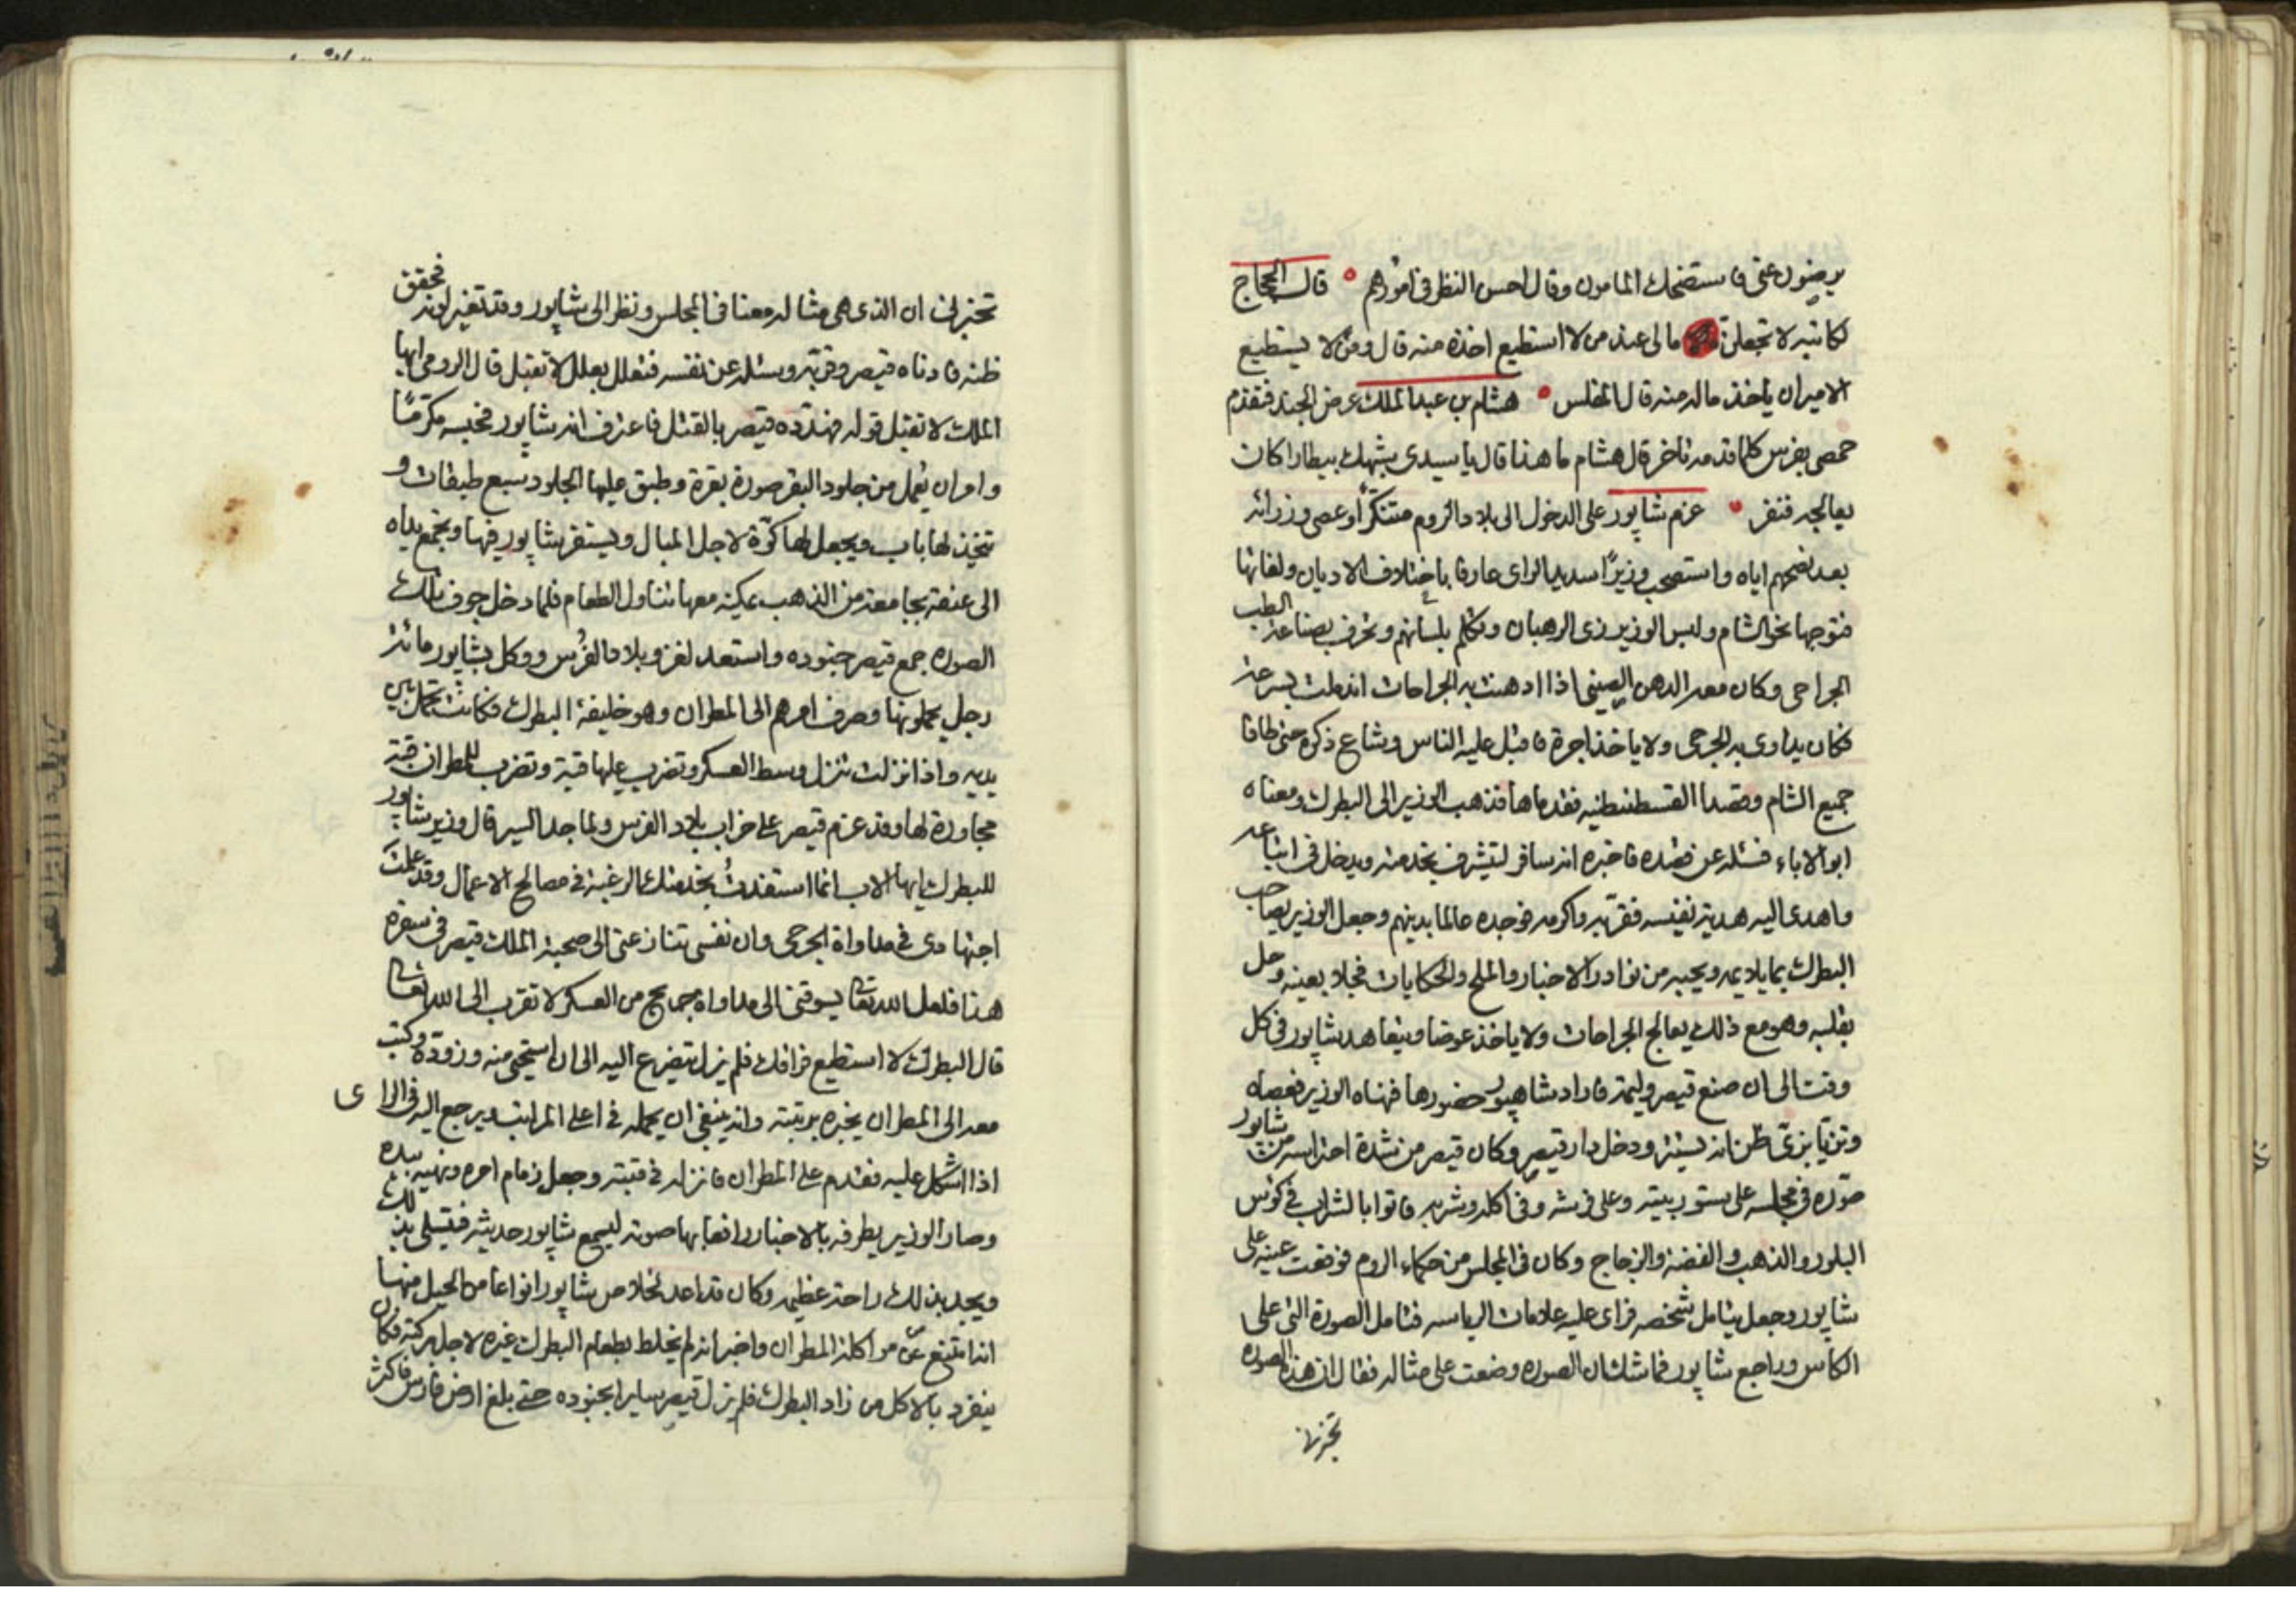 يرضون عنى فاستضحك المامون وقال احسن النظر فى امورهم ° قال الحجاج
لكاتبه لا تجعلن مالى عند من لا استطيع اخذه منه قال ومن لا يستطيع
الامير ان ياخذ ماله منه قال المفلس ° هشام بن عبد الملك عرض الجند فتقدم
حمصى بفرس كلما قدمه تاخر قال هشام ما هذا قال يا سيدى يشبهك ببيطارا كان
يعالجه فنفر ° عزم شاپور على الدخول الى بلاد الروم متنكرًا وعصى وزرائه
بعد نصحهم اياه واستصحب وزيرًا سديد الراى عارفا باختلاف الاديان ولغاتها
فتوجها نحو الشام ولبس الوزير زى الرهبان وتكلم بلسانهم وتحرف بصناعة الطب
الجراحى وكان معه الدهن الصينى اذا ادهنت به الجراحات اندملت بسرعة
فكان يداوى به الجرحى ولا ياخذ اجرة فاقبل عليه الناس وشاع ذكره حتى طافا
جميع الشام وقصدا القسطنطنيه فقدماها فذهب الوزير الى البطرك ومعناه
ابو الاباء فسئله عن قصده فاخبره انه سافر ليتشرف بخدمته ويدخل فى اتباعه
واهدى اليه هدية نفيسه فقرّبه واكرمه فوجده عالما بدينهم وجعل الوزير يصاحب
البطرك بما يلايمه ويجيبه من نوادر الاخبار والملح والحكايات فحلا بعينه وحل
بقلبه وهو مع ذلك يعالج الجراحات ولا ياخذ عوضا ويتعاهد شاپور فى كل
وقت الى ان صنع قيصر وليمة فاراد شاهپور حضورها فنهاه الوزير فعصاه
وتزيا بزىّ ظن انه يستره ودخل دار قيصر وكان قيصر من شدة احتراسه من شاپور
صوّره فى مجلسه على ستور بيته وعلى فرشه وفى اكله وشربه فاتوا بالشراب فى كوس
البلور والذهب والفضة والزجاج وكان فى المجلس من حكماء الروم فوقعت عينه على
شاپور وجعل يتامل شخصه فراى عليه علامات الرياسه فتامل الصورة التى على
الكاس وراجع شاپور فما شك ان الصوره وضعت على مثاله فقال ان هذه الصوره
تخبرنى
تخبرنى ان الذى هى مثاله معنا فى المجلس ونظر الى شاپور وقد تغير لونه فحقق
ظنه فادناه قيصر وقربه وسئله عن نفسه فتعلل بعلل لا تقبل قال الرومى ايها
الملك لا تقبل قوله فهدّده قيصر بالقتل فاعترف انه شاپور فحبسه مكرّمًا
وامر ان يعمل من جلود البقر صورة بقرة وطبق عليها الجلود سبع طبقات و
تتخذ لها باب ويجعل لها كوّة لاجل المبال ويستقر شاپور فيها ويجمع يداه
الى عنقه بجامعة من الذهب يمكنه معها تناول الطعام فلما دخل جوف تلك
الصوره جمع قيصر جنوده واستعد لغزو بلاد الفُرس ووكل بشاپور مائة
رجل يحملونها وصرف امرهم الى المطران وهو خليفة البطرك فكانت تحمل بين
يديه واذا نزلت تنزل وسط العسكر وتضرب عليها قبة وتضرب للمطران قبة
مجاورة لها وقد عزم قيصر على خراب بلاد الفرس ولما جد السير قال وزير شاپور
للبطرك ايها الاب انما استفدتُ بخدمتك الرغبة فى مصالح الاعمال وقد علمتَ
اجتهادى فى مداواة الجرحى وان نفسى تنازعنى الى صحبة الملك قيصر فى سفره
هذا فلعل الله تعالى يسوقنى الى مداواة جماريح من العسكر لاتقرب الى الله تعالى
قال البطرك لا استطيع فراقك فلم يزل يتضرع اليه الى ان استحيى منه وزوّده وكتب
معه الى المطران يخبره برتبته وانه ينبغى ان يحمله فى اعلى المراتب ويرجع اليه فى الراى
اذا اشكل عليه فقدم على المطران فانزله فى قبته وجعل زمام امره ونهيه بيده
وصار الوزير يطرفه بالاخبار رافعا بها صوته ليسمع شاپور حديثه فيتسلى بذلك
ويجد بذلك راحة عظيمه وكان قد اعد لخلاص شاپور انواعا من الحيل منها
انه امتنع عن مواكلة المطران واخبر انه لم يخلط بطعام البطرك غيره لاجل بركته فكان
ينفرد بالاكل من زاد البطرك فلم يزل قيصر سايرا بجنوده حتى بلغ ارض فارس فاكثر